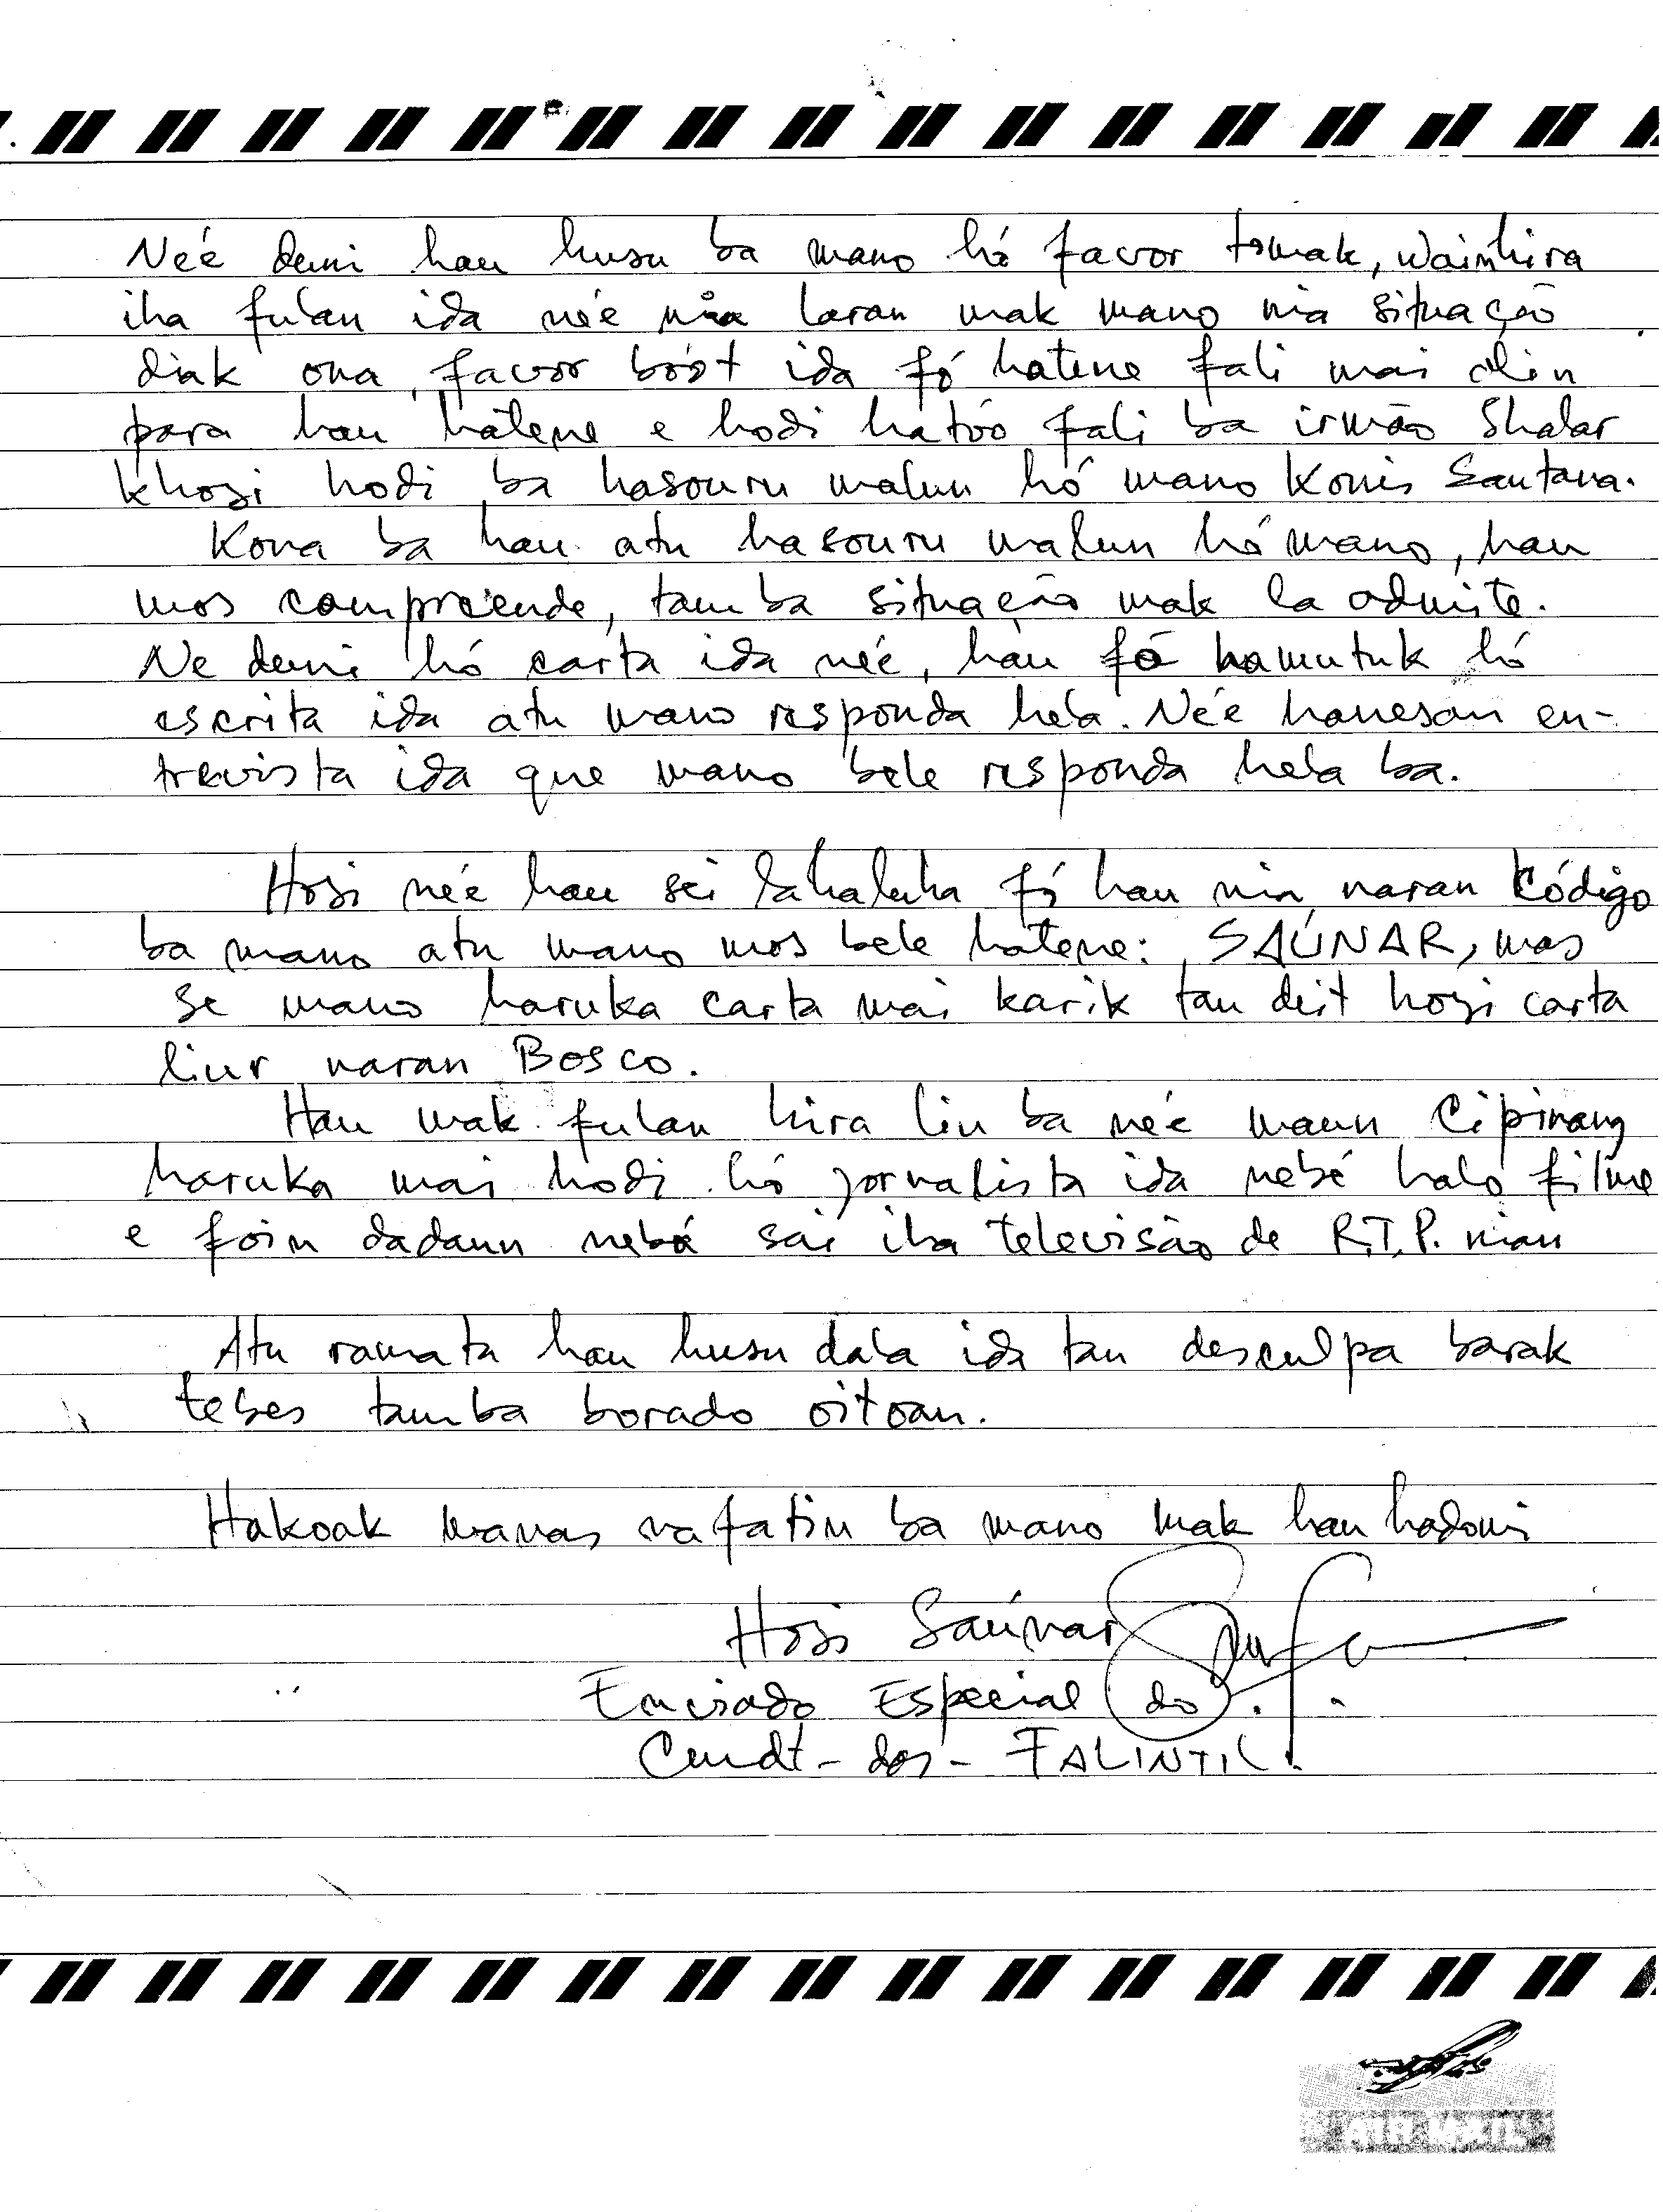 Neé demi hau husu ba mano hó favor tomak, wainhira
iha fulan ida neé nia laran mak mano nia situação
diak ona, favor boót ida fó hatene fali mai alin
para hau hatene e hodi hatóo fali ba irmão Shalar
Khosi hodi ba hasouru malun hó mano Konis Santana.
Kona ba hau atu hasouru malun hó mano, hau
mos compreende, tamba situação mak la admite.
Ne demi hó carta ida neé, hau fó hamutuk hó
escrita ida atu mano responda hela. Neé hanesan en-
trevista ida que mano bele responda hela ba.
Hosi neé hau sei lahaluha fó hau nia naran Código
ba mano atu mano mos bele hatene: SAÚNAR, mas
se mano haruka carta mai karik tau deit hosi carta
liur naran Bosco.
Hau mak fulan hira liu ba neé maun Cipinang
haruka mai hodi hó jornalista ida nebé haló filme
e foin dadaun nebé sai iha televisão de R.T.P. nian
Atu ramata hau husu dala ida tan desculpa barak
tebes tamba borado oitoan.
Hakoak manas nafatin ba mano mak hau hadomi
Hosi Saúnar
Enviado Especial do
Cmdt- das- FALINTIL.
AIR MAIL